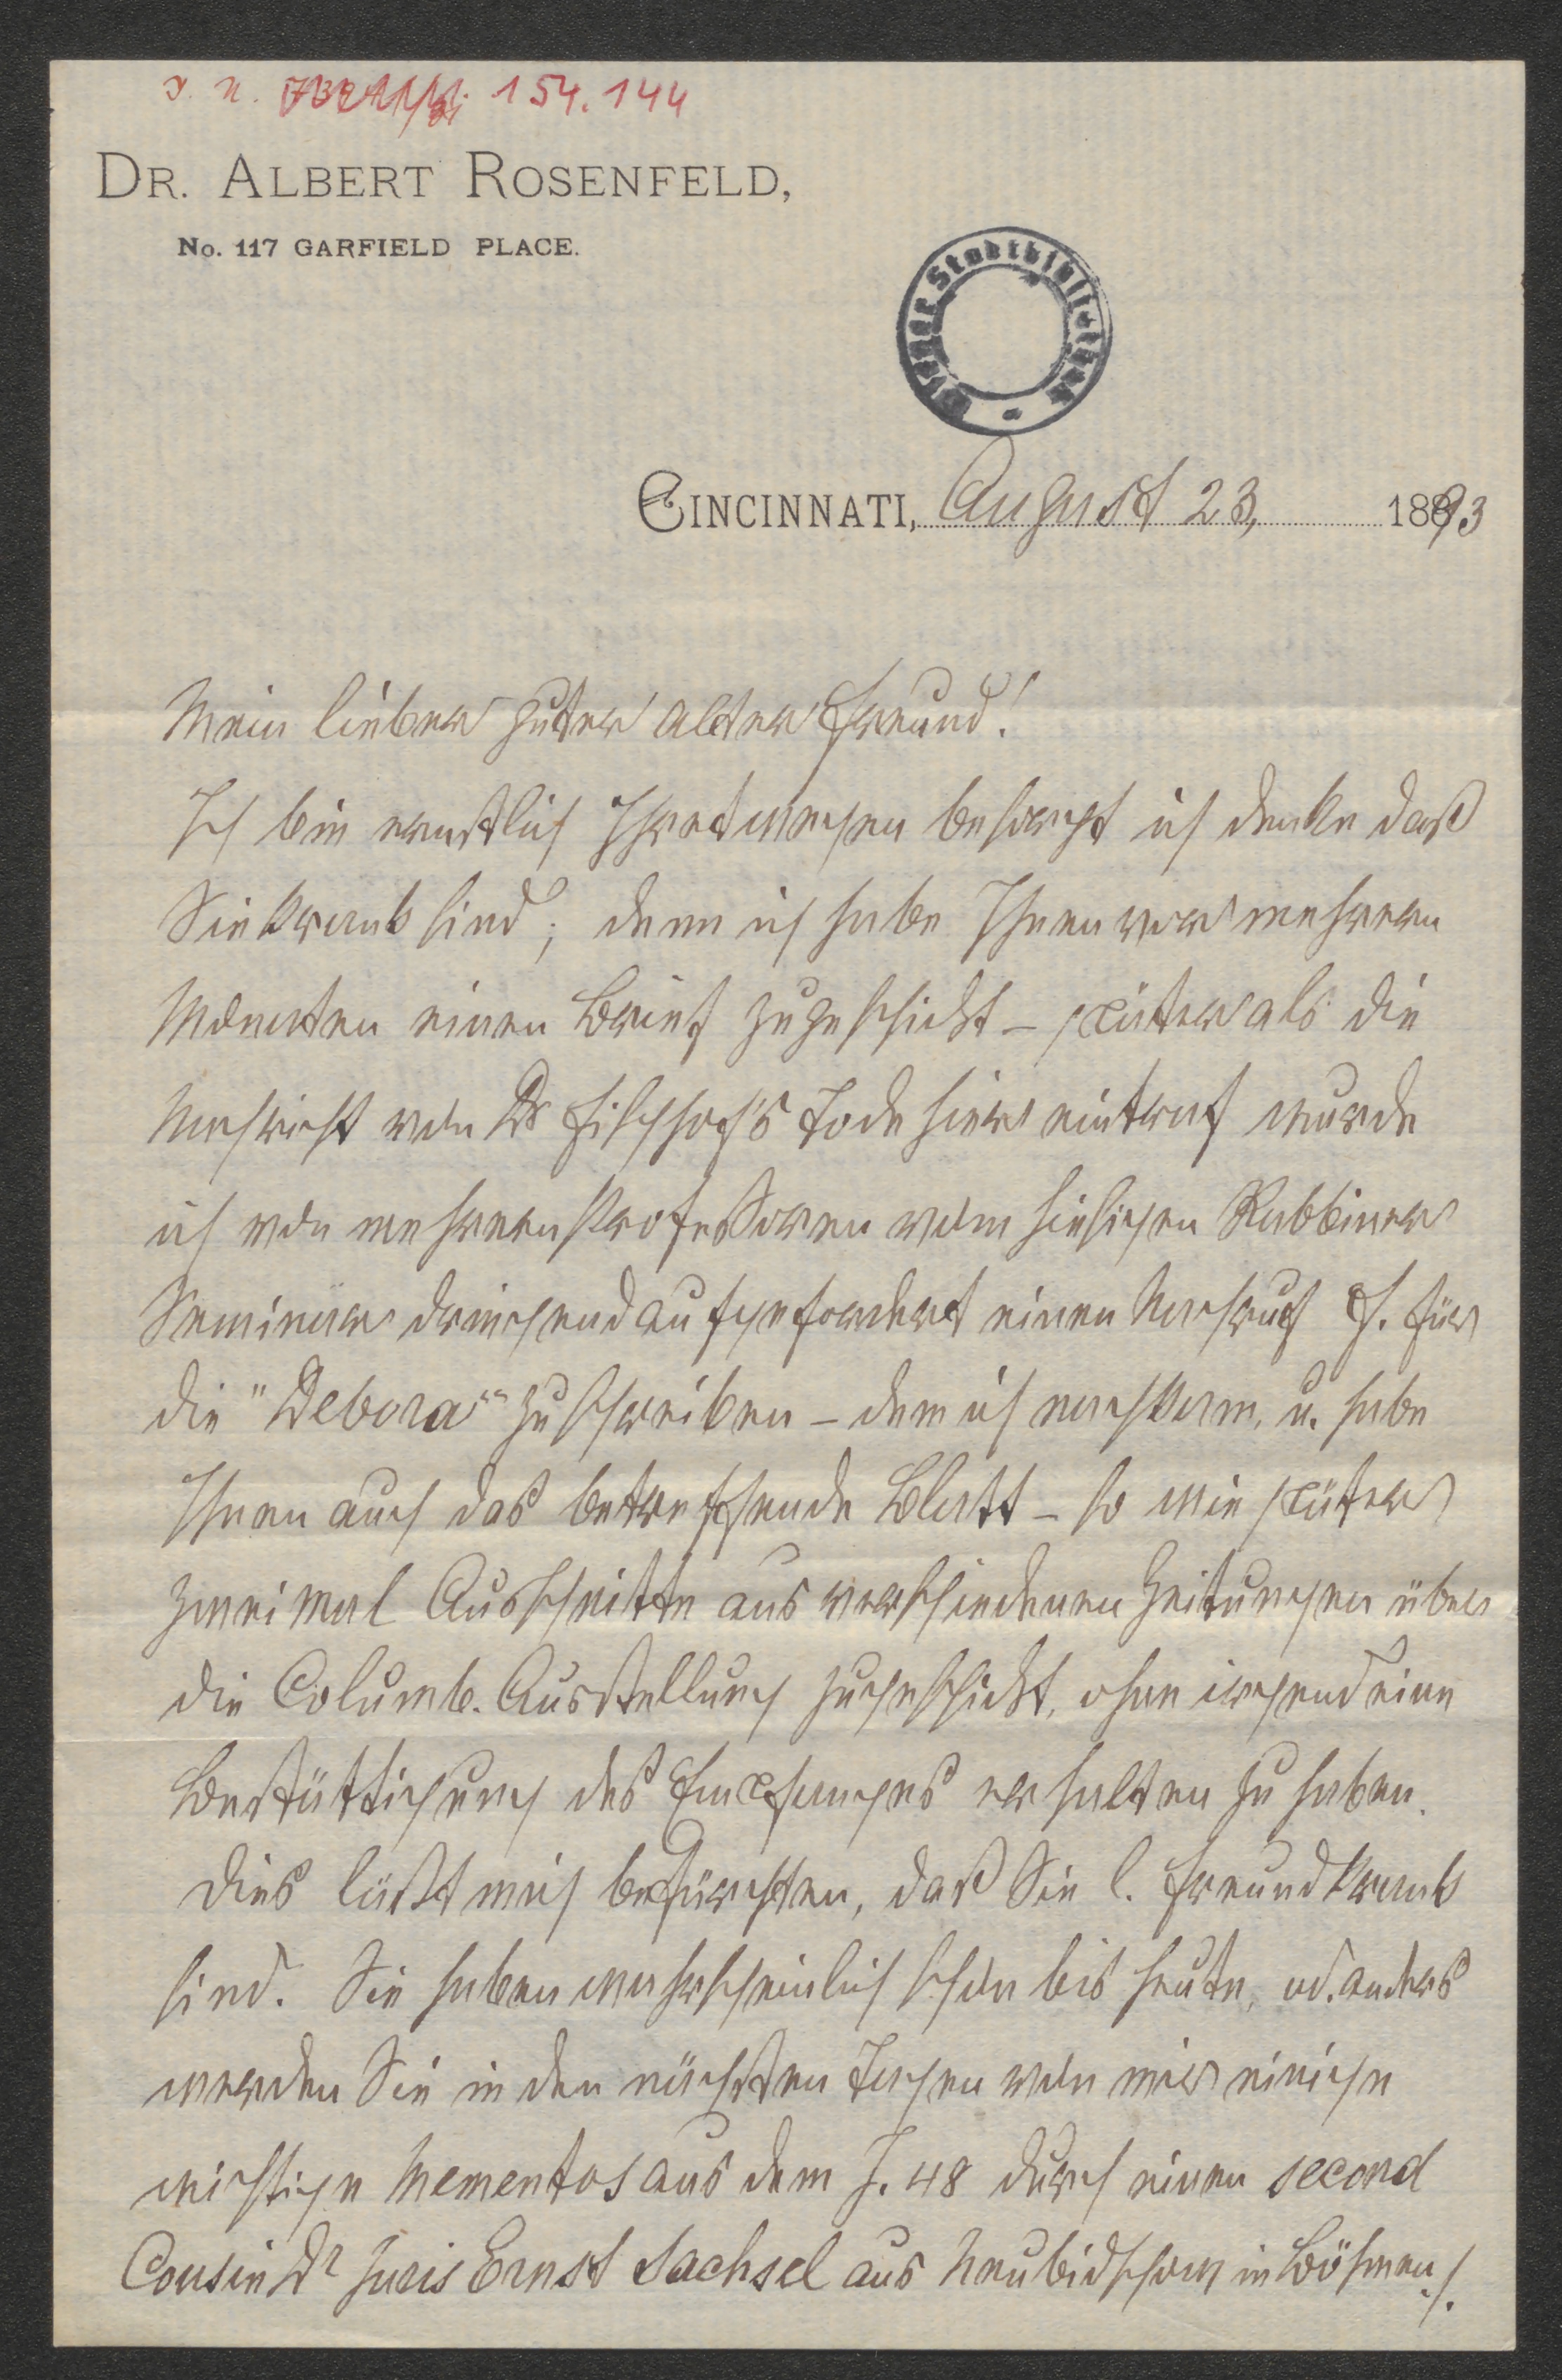 J. N. 154.144
DR. ALBERT ROSENFELD,
No. 117 GARFIELD PLACE.
Wiener Stadtbibliothek
CINCINNATI, August 23, 1893
Mein lieber guter alter Freund!
Ich bin ernstlich Ihretwegen besorgt ich denke daß
Sie krank sind; denn ich habe Ihnen vor mehrern
Monaten einen Brief zugeschickt – später als die
Nachricht von Dr Fischhof's Tode hier eintraf wurde
ich von mehrern Professoren vom hiesigen Rabbiner
Seminär dringend aufgefordert einen Nachruf F. für
die "Debora" zu schreiben – dem ich nachkam, u. habe
Ihnen auch das betreffende Blatt – so wie später
zweimal Ausschnitte aus verschiedenen Zeitungen über
die Columb. Ausstellung zugeschickt, ohne irgend eine
Bestättigung des Empfanges erhalten zu haben.
Dies läßt mich befürchten, daß Sie l. Freund krank
sind. Sie haben wahrscheinlich schon bis heute, od. anders
werden Sie in den nächsten Tagen von mir einige
wichtige Mementos aus dem J. 48 durch einen second
Cousin Dr Juris Ernst Sachsel aus Neubidschow in Böhmen ./.